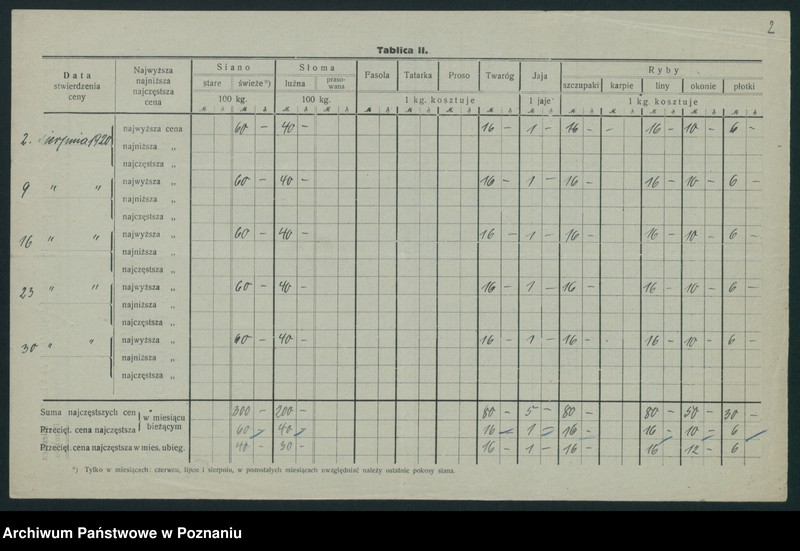 2
Tablica II.
Data stwierdzenia ceny | Najwyższa najniższa najczęstsza cena | Siano | Słoma | Fasola | Tatarka | Proso | Twaróg | Jaja | Ryby
stare | świeże*) | luźna | praso-wana | szczupaki | karpie | liny | okonie | płotki
100 kg. | 100 kg. | 1 kg. kosztuje | 1 jaje | 1 kg. kosztuje
2. sierpnia 1920 | najwyższa cena | 60 – | 40 – | 16 – | 1 – | 16 – | – | 16 – | 10 – | 6 –
najniższa „
najczęstsza „
9 " " | najwyższa „ | 60 – | 40 – | 16 – | 1 – | 16 – | 16 – | 10 – | 6 –
najniższa „
najczęstsza „
16 " " | najwyższa „ | 60 – | 40 – | 16 – | 1 – | 16 – | 16 – | 10 – | 6 –
najniższa „
najczęstsza „
23 " " | najwyższa „ | 60 – | 40 – | 16 – | 1 – | 16 – | 16 – | 10 – | 6 –
najniższa „
najczęstsza „
30 " " | najwyższa „ | 60 – | 40 – | 16 – | 1 – | 16 – | 16 – | 10 – | 6 –
najniższa „
najczęstsza „
Suma najczęstszych cen | w miesiącu bieżącym | 300 – | 200 – | 80 – | 5 – | 80 – | 80 – | 50 – | 30 –
Przecięt. cena najczęstsza | 60 | 40 | 16 – | 1 – | 16 – | 16 – | 10 – | 6
Przecięt. cena najczęstsza w mies. ubieg. | 40 – | 30 – | 16 – | 1 – | 16 – | 16 | 12 – | 6
*) Tylko w miesiącach: czerwcu, lipcu i sierpniu, w pozostałych miesiącach uwzględniać należy ostatnie pokosy siana.
Archiwum Państwowe w Poznaniu